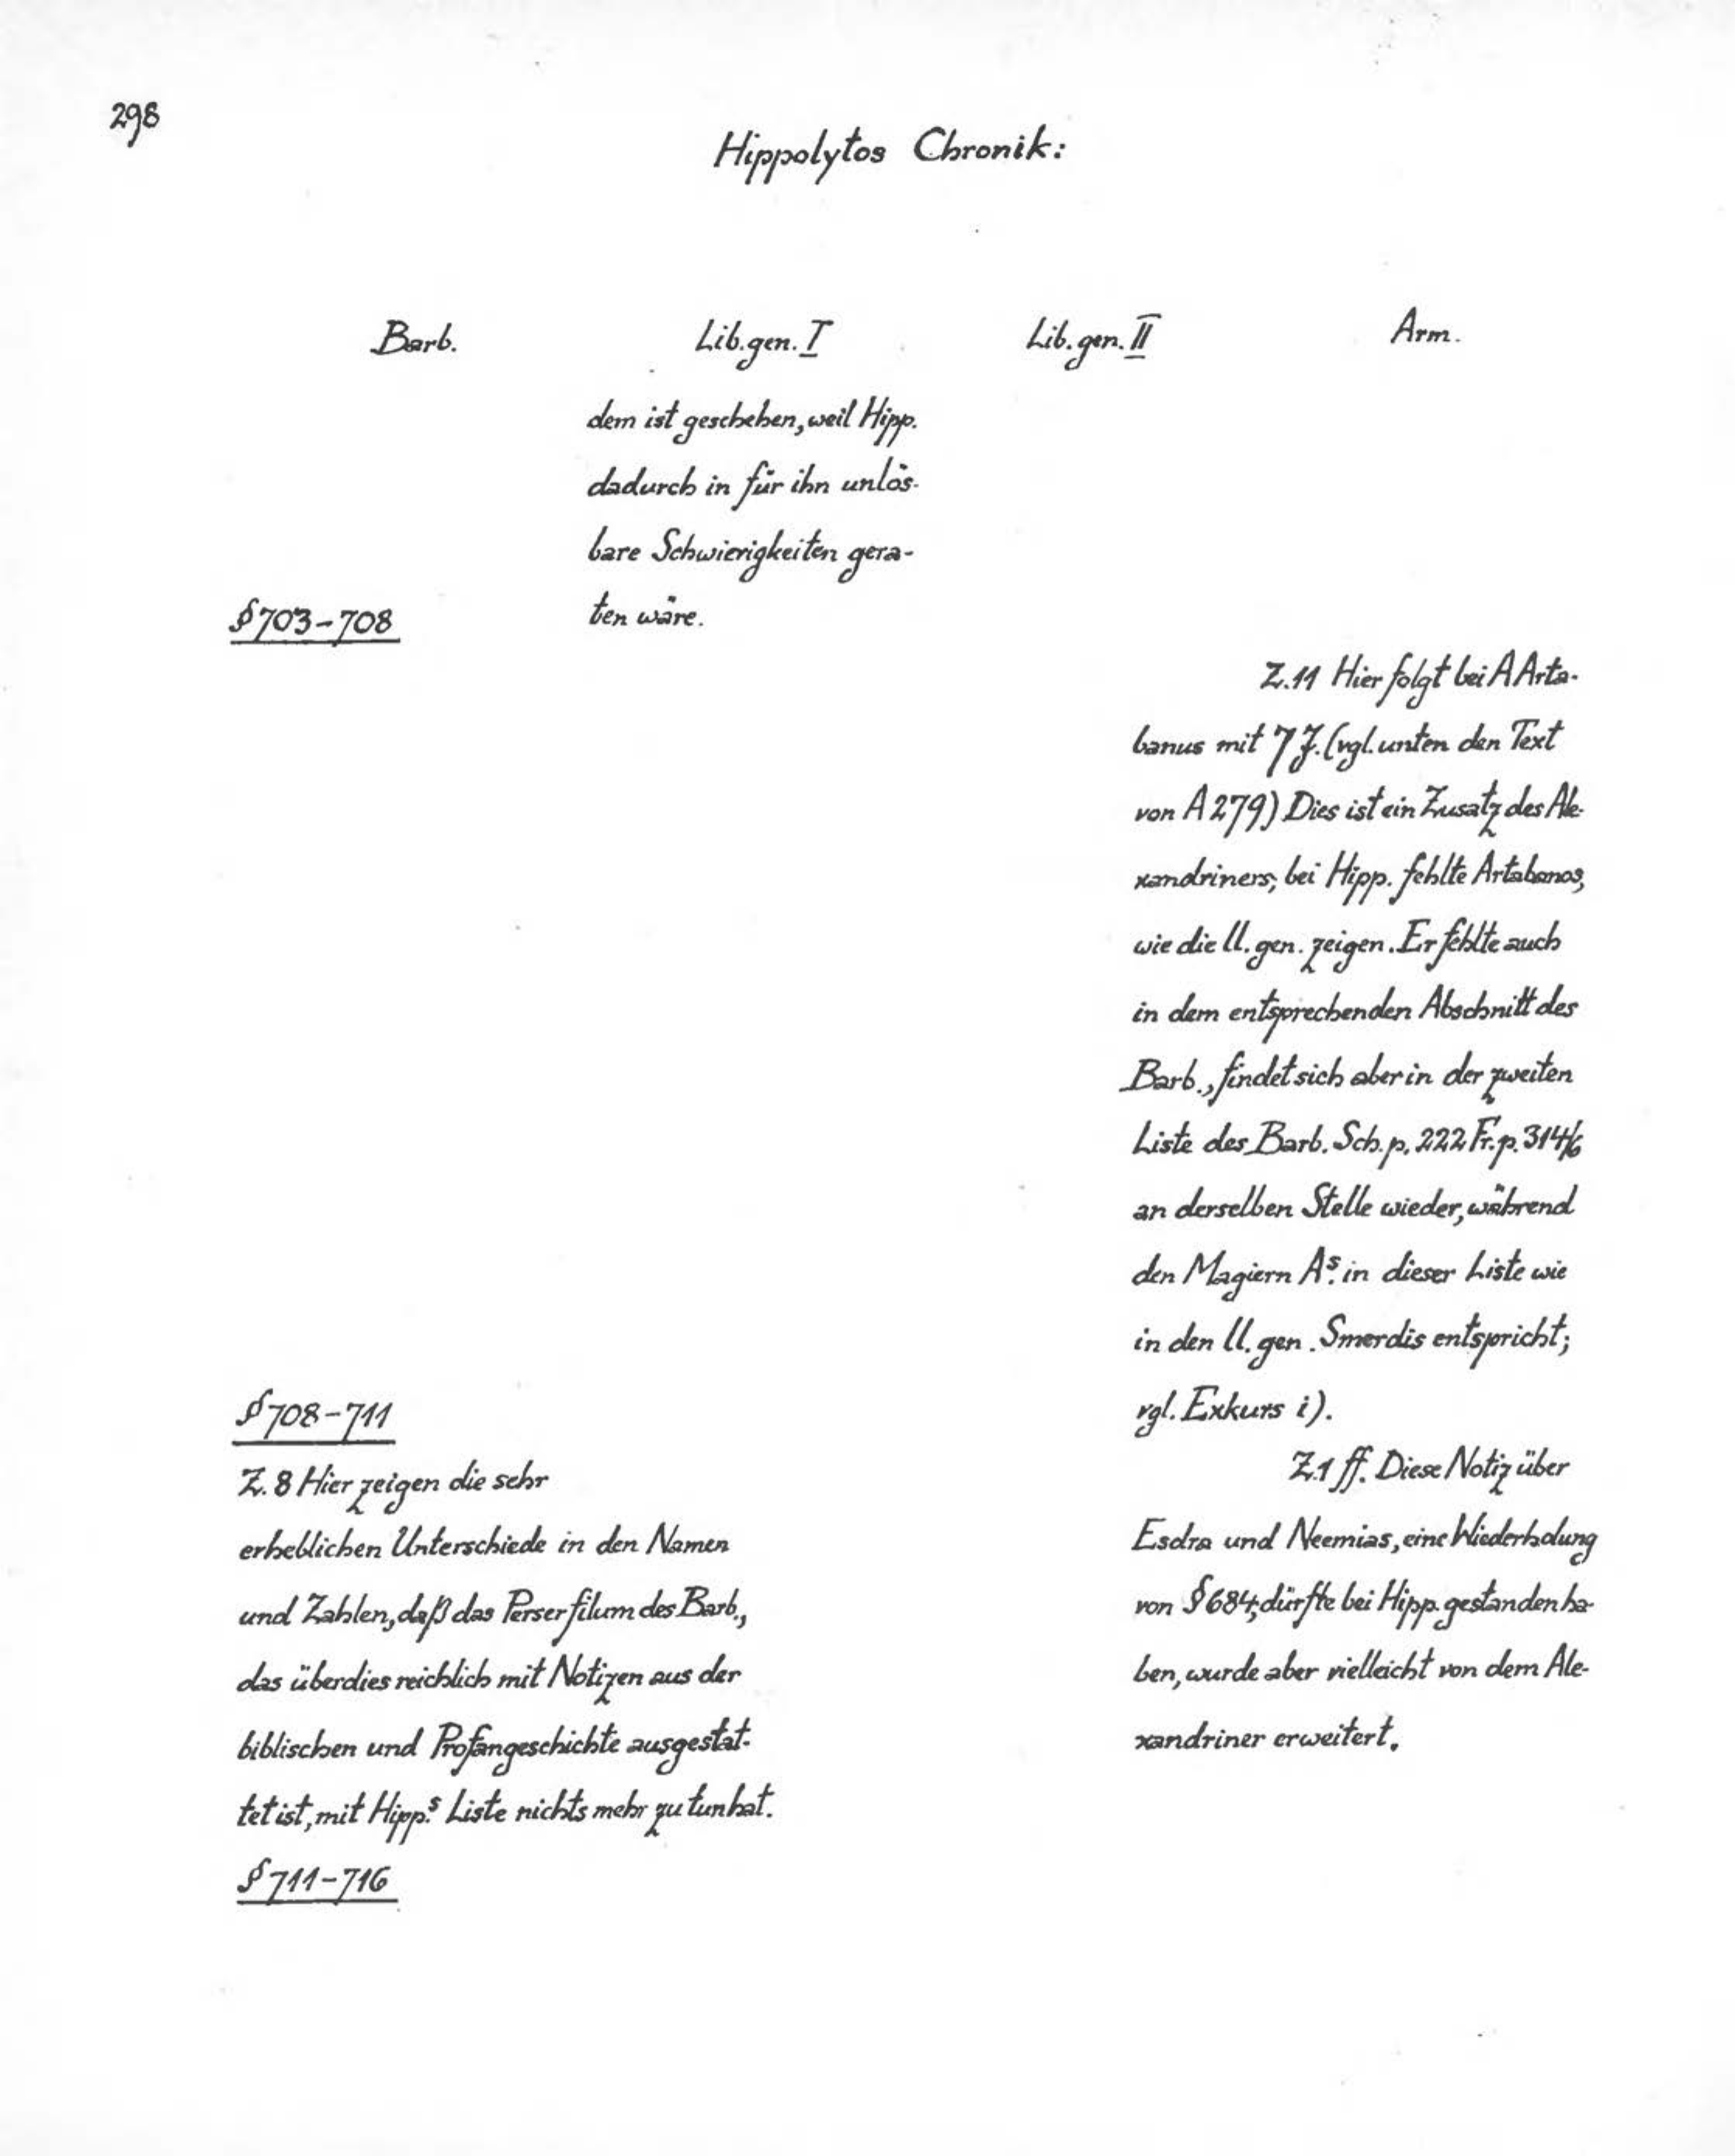 298
Hippolytos Chronik:
Barb.
Lib.gen. I
Lib.gen. II
Arm.
dem ist geschehen, weil Hipp.
dadurch in für ihn unlös-
bare Schwierigkeiten gera-
ten wäre.
§703-708
Z.11 Hier folgt bei A Arta-
banus mit 7 J. (vgl. unten den Text
von A 279) Dies ist ein Zusatz des Ale-
xandriners; bei Hipp. fehlte Artabanos,
wie die ll. gen. zeigen. Er fehlte auch
in dem entsprechenden Abschnitt des
Barb., findet sich aber in der zweiten
Liste des Barb. Sch. p. 222 Fr. p. 314/6
an derselben Stelle wieder, während
den Magiern A.s in dieser Liste wie
in den ll. gen. Smerdis entspricht;
vgl. Exkurs i).
§708-711
Z. 8 Hier zeigen die sehr
erheblichen Unterschiede in den Namen
und Zahlen, daß das Perserfilum des Barb.,
das überdies reichlich mit Notizen aus der
biblischen und Profangeschichte ausgestat-
tet ist, mit Hipp.s Liste nichts mehr zu tun hat.
Z.1 ff. Diese Notiz über
Esdra und Neemias, eine Wiederholung
von §684, dürfte bei Hipp. gestanden ha-
ben, wurde aber vielleicht von dem Ale-
xandriner erweitert.
§711-716